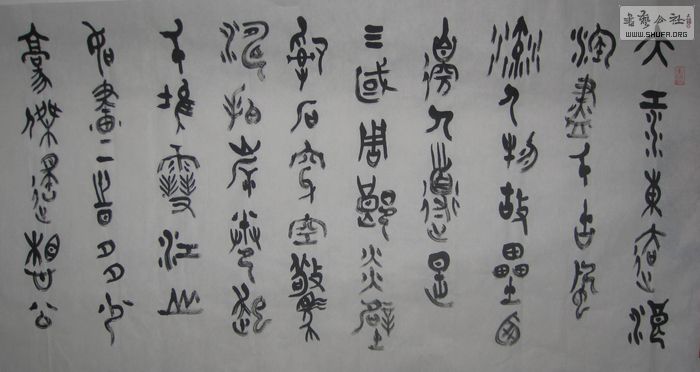 大江東去浪
淘盡千古風
流人物故壘西
邊人道是
三國周郎赤壁
亂石穿空驚
濤拍岸捲起
千堆雪江山
如畫一時多少
豪傑遙想公
书艺公社
WWW.SHUFA.ORG